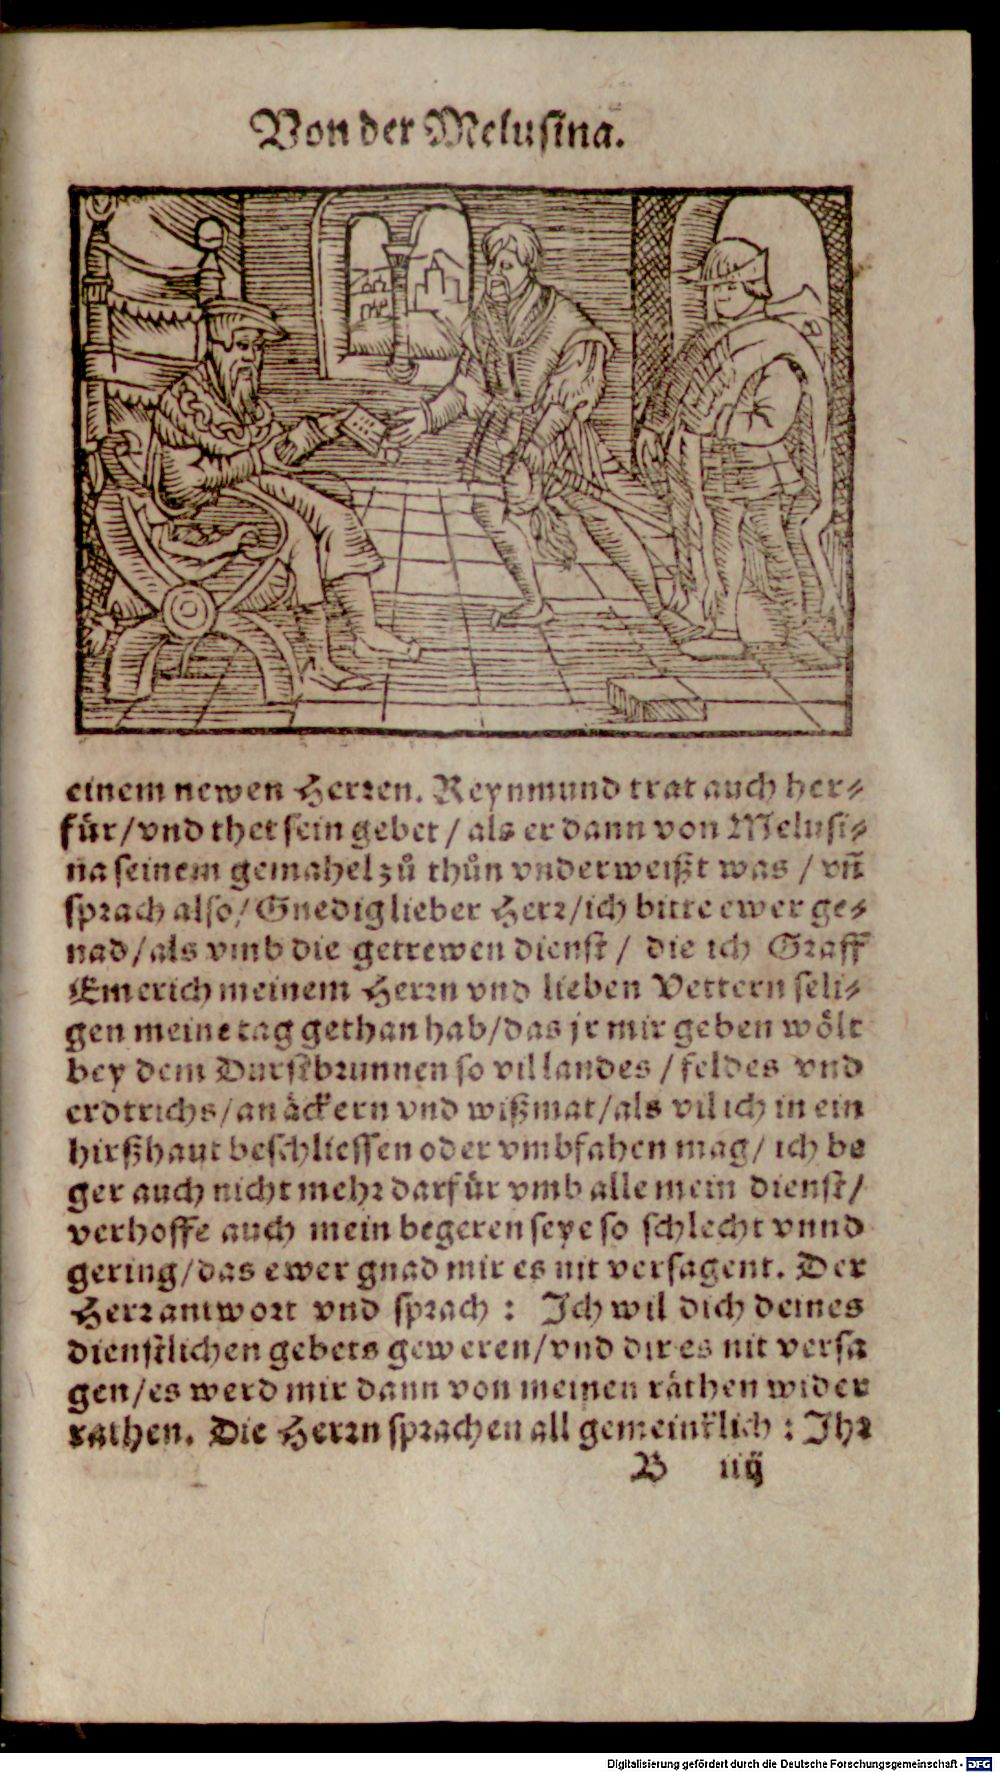 Von der Melusina.
einem newen Herren. Reynmund trat auch her⸗
für/vnd thet sein gebet/ als er dann von Melusi⸗
na seinem gemahel zů thůn vnderweißt was / vñ
sprach also/ Gnedig lieber Herr/ich bitte ewer ge⸗
nad/als vmb die getrewen dienst/ die ich Graff
Emerich meinem Herrn vnd lieben Vettern seli⸗
gen meine tag gethan hab/das jr mir geben wölt
bey dem Durstbrunnen so vil landes /feldes vnd
erdtrichs/an äckern vnd wißmat/als vil ich in ein
hirßhaut beschliessen oder vmbfahen mag/ ich be
ger auch nicht mehr darfür vmb alle mein dienst/
verhoffe auch mein begeren seye so schlecht vnnd
gering/das ewer gnad mir es nit versagent. Der
Herr antwort vnd sprach : Ich wil dich deines
dienstlichen gebets geweren/vnd dir es nit versa
gen/es werd mir dann von meinen räthen wider
rathen. Die Herrn sprachen all gemeinklich : Ihr
B iiij
Digitalisierung gefördert durch die Deutsche Forschungsgemeinschaft - DFG